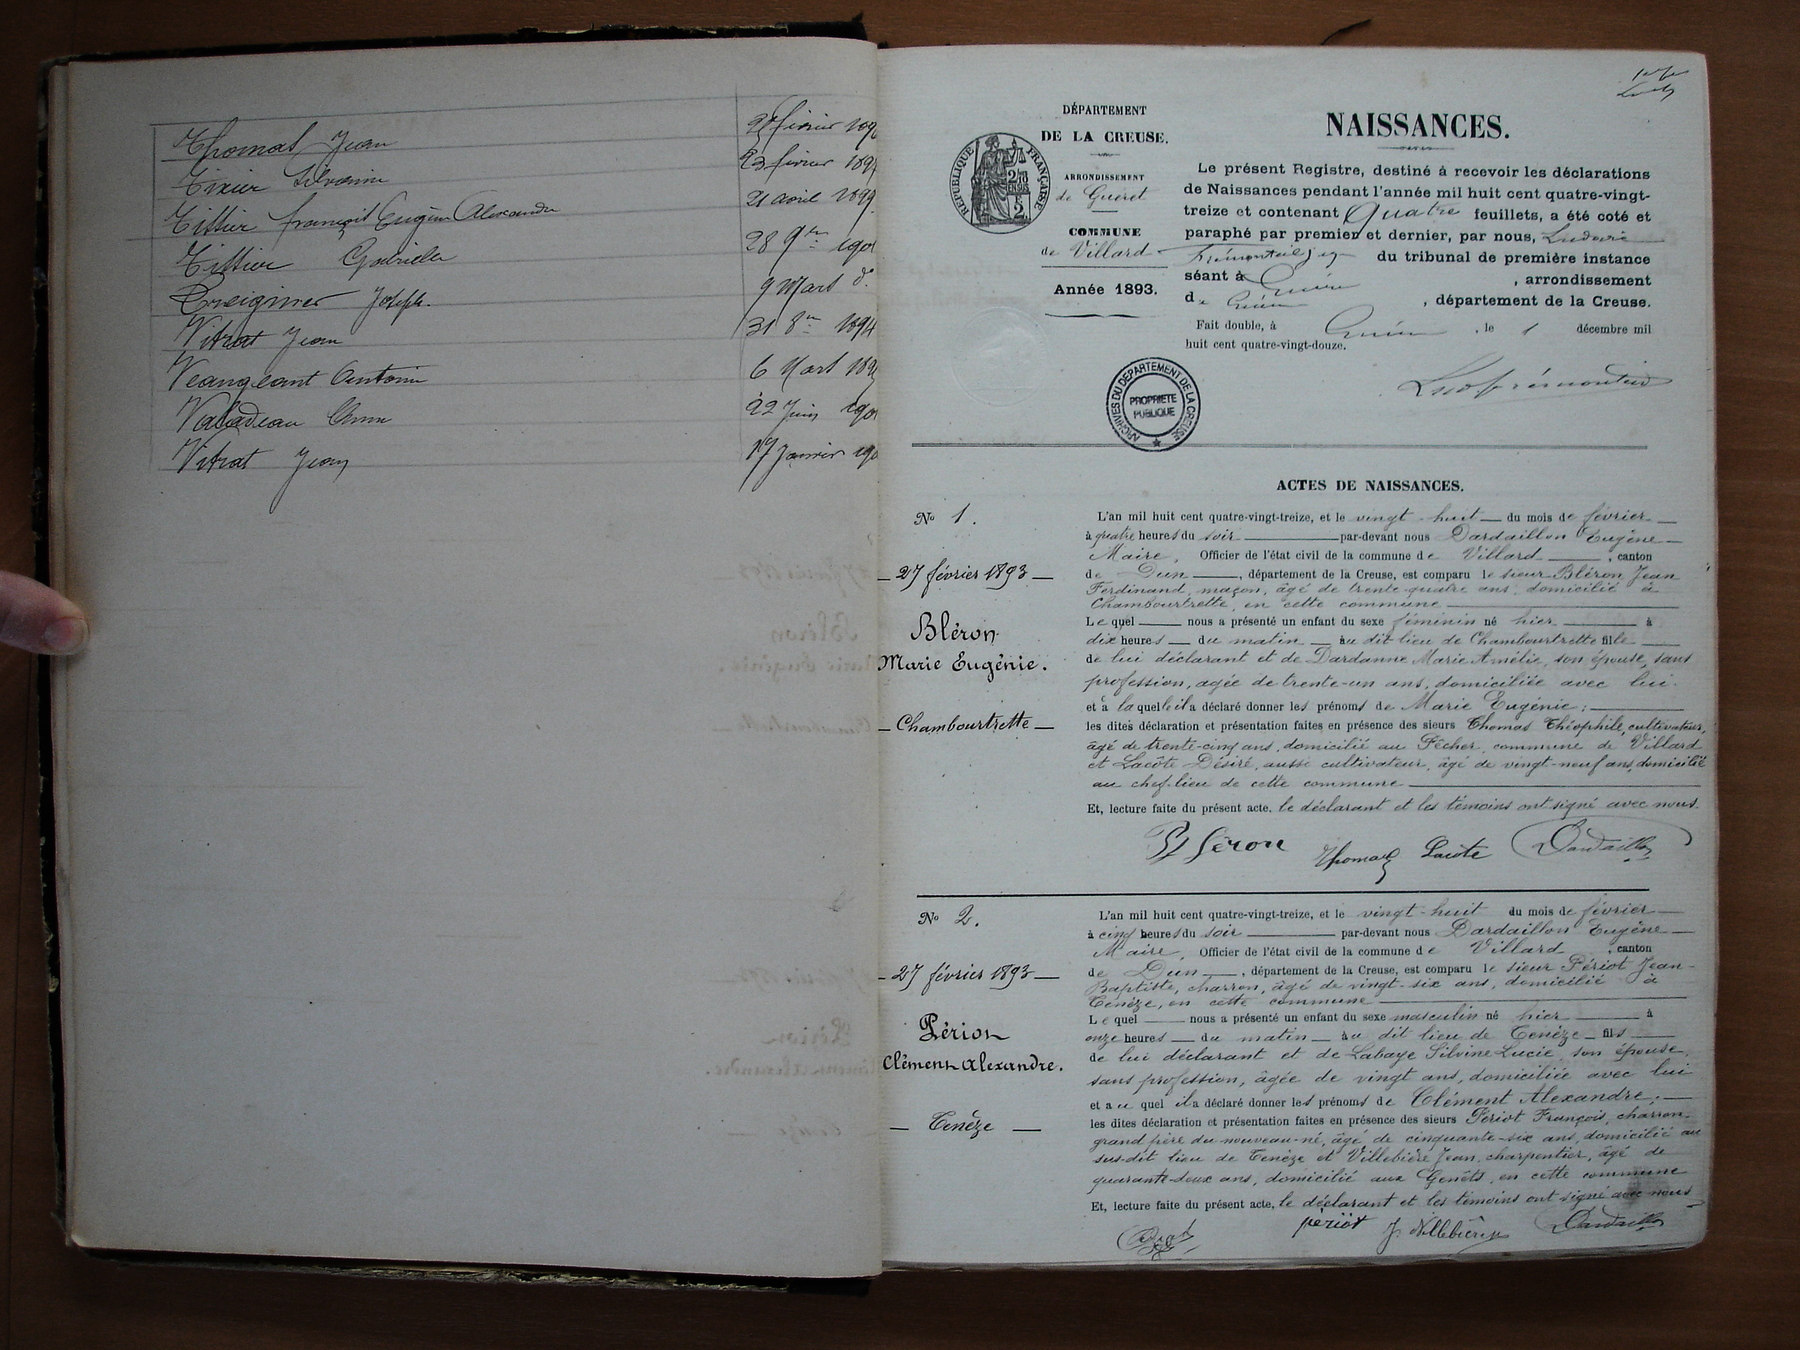 Thomas Jean
Tixier Silvanie 23 février 189
Tissier françois Eugène Alexandre 21 avril 1899
Tissier Gabrielle 28 9bre 190
Joseph 9 Mars do
Vitrat Jean 31 8bre 1894
Veangeant Antonin 6 Mars 189
Valadeau 22 Juin 190
Vitrat Jean 17 Janvier 190
DÉPARTEMENT
DE LA CREUSE.
ARRONDISSEMENT
de Guéret
COMMUNE
de Villard
Année 1893.
RÉPUBLIQUE FRANÇAISE
ARCHIVES DU DEPARTEMENT DE LA CREUSE
PROPRIETE
PUBLIQUE
NAISSANCES.
Le présent Registre, destiné à recevoir les déclarations
de Naissances pendant l'année mil huit cent quatre-vingt-
treize et contenant Quatre feuillets, a été coté et
paraphé par premier et dernier, par nous, Ludovic
du tribunal de première instance
séant à Guéret, arrondissement
de Guéret, département de la Creuse.
Fait double, à Guéret, le 1 décembre mil
huit cent quatre-vingt-douze.
ACTES DE NAISSANCES.
No 1.
27 février 1893
Bléron
Marie Eugénie.
Chambourtrette
L'an mil huit cent quatre-vingt-treize, et le vingt-huit du mois de février
à quatre heures du soir par-devant nous Dardaillon Eugène
Maire, Officier de l'état civil de la commune de Villard, canton
de Dun, département de la Creuse, est comparu le sieur Bléron Jean
Ferdinand, maçon, âgé de trente-quatre ans, domicilié à
Chambourtrette, en cette commune
Lequel nous a présenté un enfant du sexe féminin né hier à
dix heures du matin au dit lieu de Chambourtrette fille
de lui déclarant et de Dardanne Marie Amélie, son épouse, sans
profession, agée de trente-un ans, domiciliée avec lui.
et à laquelle il a déclaré donner les prénoms de Marie Eugénie;
les dites déclaration et présentation faites en présence des sieurs Thomas Théophile, cultivateur,
âgé de trente-cinq ans, domicilié au Pêcher, commune de Villard
et Lacôte Désiré, aussi cultivateur, âgé de vingt-neuf ans, domicilié
au chef-lieu de cette commune
Et, lecture faite du présent acte, le déclarant et les témoins ont signé avec nous.
Bléron Thomas Lacôte Dardaillon
No 2.
27 février 1893
Périot
Clément Alexandre.
Tenèze
L'an mil huit cent quatre-vingt-treize, et le vingt-huit du mois de février
à cinq heures du soir par-devant nous Dardaillon Eugène
Maire, Officier de l'état civil de la commune de Villard, canton
de Dun, département de la Creuse, est comparu le sieur Périot Jean-
Baptiste, charron, âgé de vingt-six ans, domicilié à
Tenèze, en cette commune
Lequel nous a présenté un enfant du sexe masculin né hier à
onze heures du matin au dit lieu de Tenèze fils
de lui déclarant et de Labaye Silvine Lucie, son épouse,
sans profession, âgée de vingt ans, domiciliée avec lui
et auquel il a déclaré donner les prénoms de Clément Alexandre;
les dites déclaration et présentation faites en présence des sieurs Périot François, charron,
grand père du nouveau-né, âgé de cinquante-six ans, domicilié au
sus-dit lieu de Tenèze et Villebière Jean, charpentier, âgé de
quarante-deux ans, domicilié aux Genêts, en cette commune
Et, lecture faite du présent acte, le déclarant et les témoins ont signé avec nous
périot J. Villebière Dardaillon